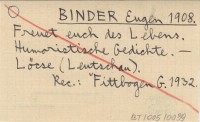 BINDER Eugen 1908.
Freuet euch des Lebens.
Humoristische Gedichte. —
Löcse (Leutschau).
Rec.: Fittbogen G. 1932.